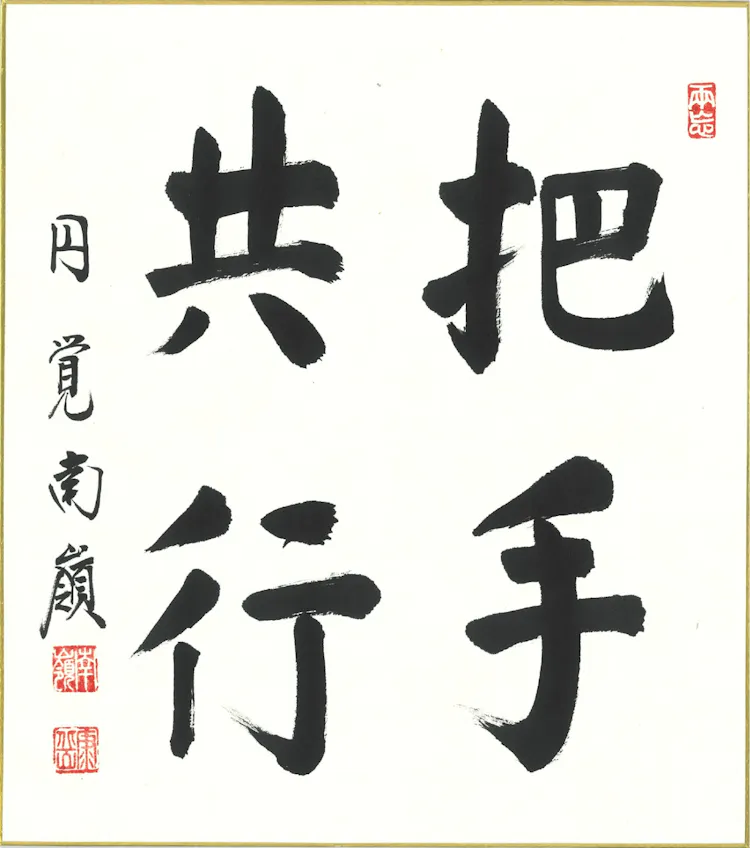 把手
共行
円覚南嶺
南嶺